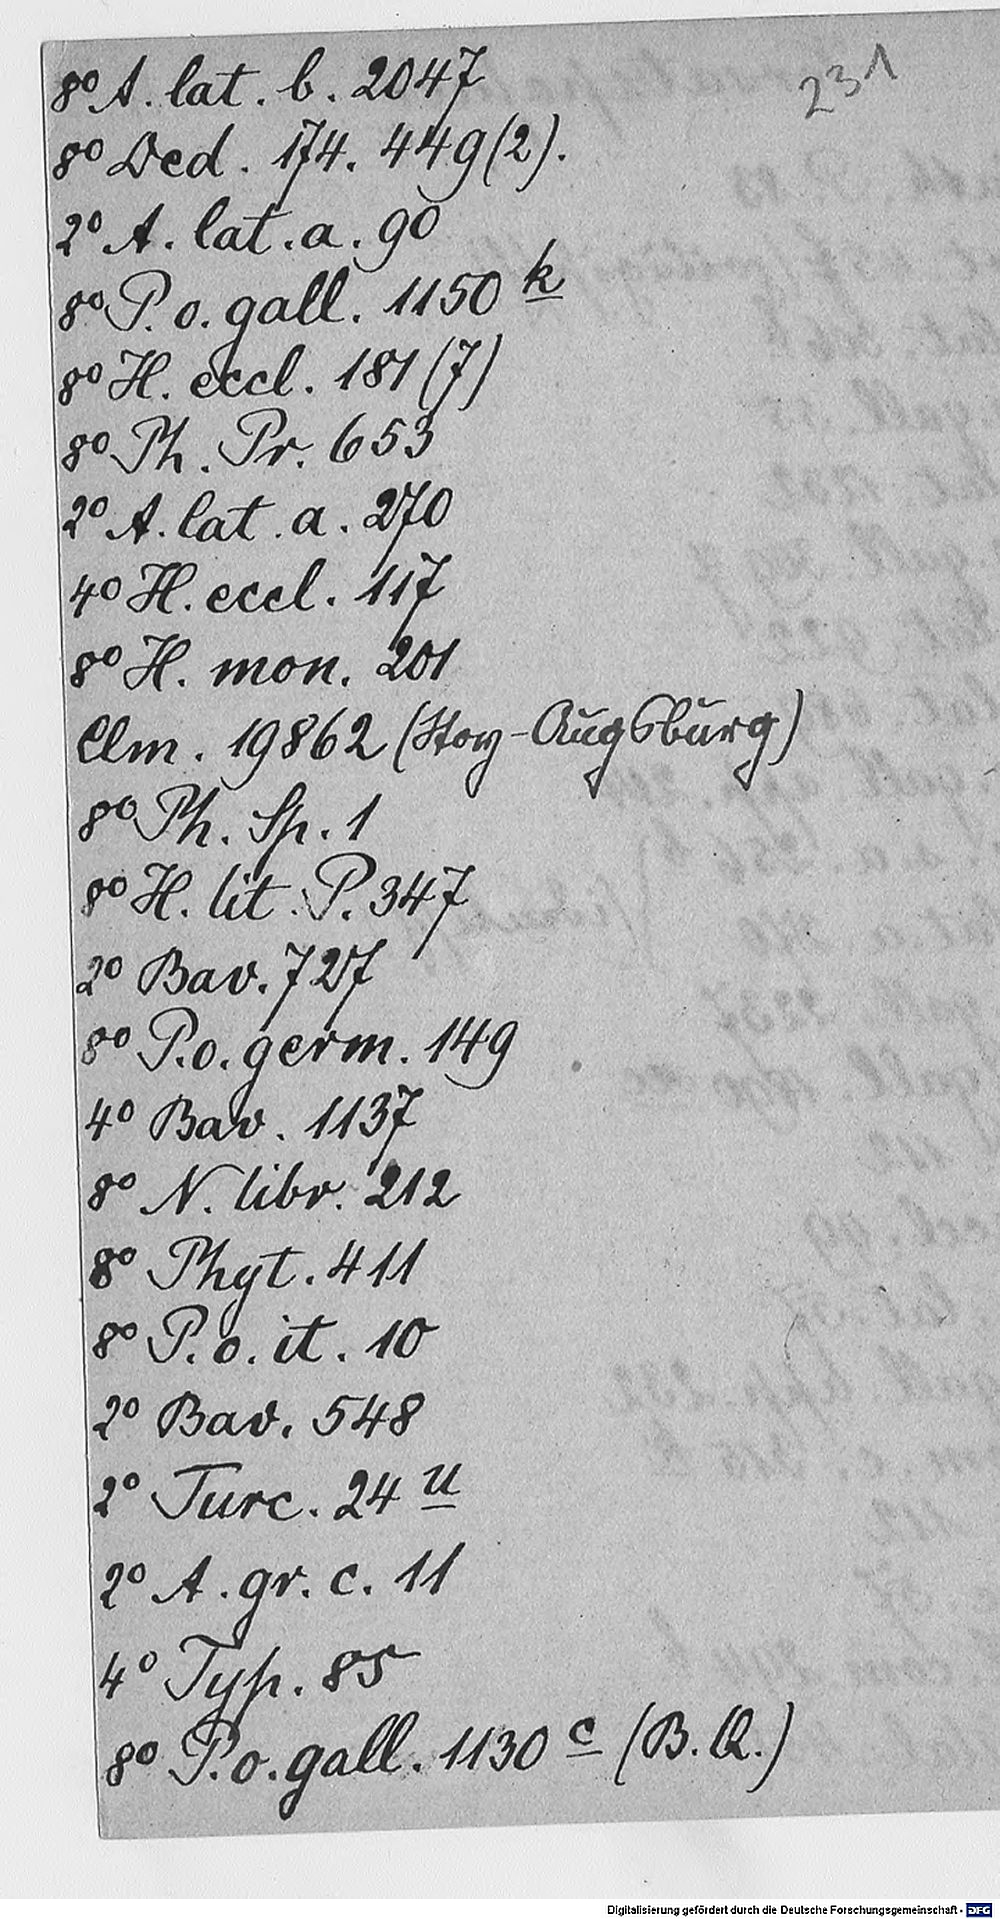 231
8° A. lat. b. 2047
8° Ded. 174. 449(2).
2° A. lat. a. 90
8° P. o. gall. 1150 k
8° H. eccl. 181 (7)
8° Ph. Pr. 653
2° A. lat. a. 270
4° H. eccl. 117
8° H. mon. 201
Clm. 19862 (Stoy-Augsburg)
8° Ph. Sp. 1
8° H. lit. P. 347
2° Bav. 727
8° P. o. germ. 149
4° Bav. 1137
8° N. libr. 212
8° Phyt. 411
8° P. o. it. 10
2° Bav. 548
2° Turc. 24 u
2° A. gr. c. 11
4° Typ. 85
8° P. o. gall. 1130 c (B. Q.)
Digitalisierung gefördert durch die Deutsche Forschungsgemeinschaft - DFG